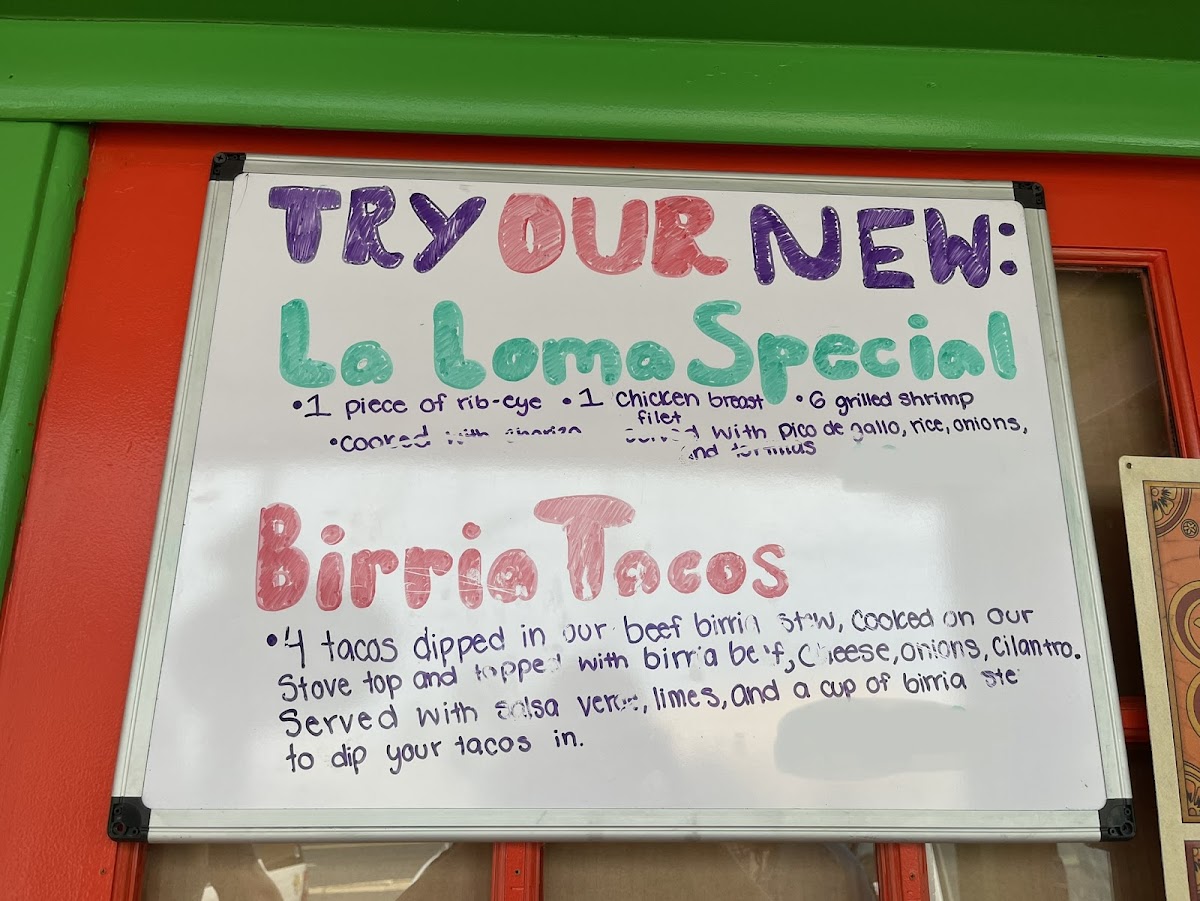 TRY OUR NEW:
La Loma Special
•1 piece of rib-eye •1 chicken breast •6 grilled shrimp
filet
•cooked with with pico de gallo, rice, onions,
and tortillas
Birria Tacos
•4 tacos dipped in our beef birria stew, cooked on our
Stove top and topped with birria beef, cheese, onions, cilantro.
Served with salsa verde, limes, and a cup of birria
to dip your tacos in.